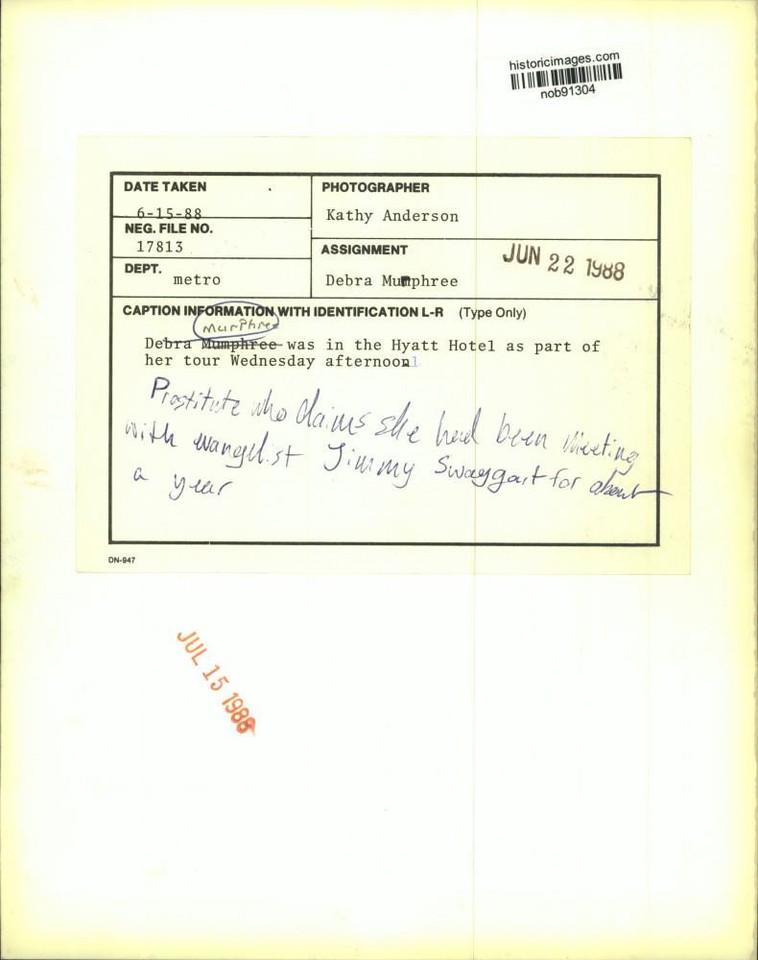 historicimages.com
nob91304
DATE TAKEN
6-15-88
PHOTOGRAPHER
Kathy Anderson
NEG. FILE NO.
17813
ASSIGNMENT
Debra Mumphree
JUN 22 1988
DEPT.
metro
CAPTION INFORMATION WITH IDENTIFICATION L-R (Type Only)
Murphree
Debra Mumphree was in the Hyatt Hotel as part of
her tour Wednesday afternoon
Prostitute who claims she had been meeting
with evangelist Jimmy Swaggart for about
a year
DN-947
JUL 15 1988